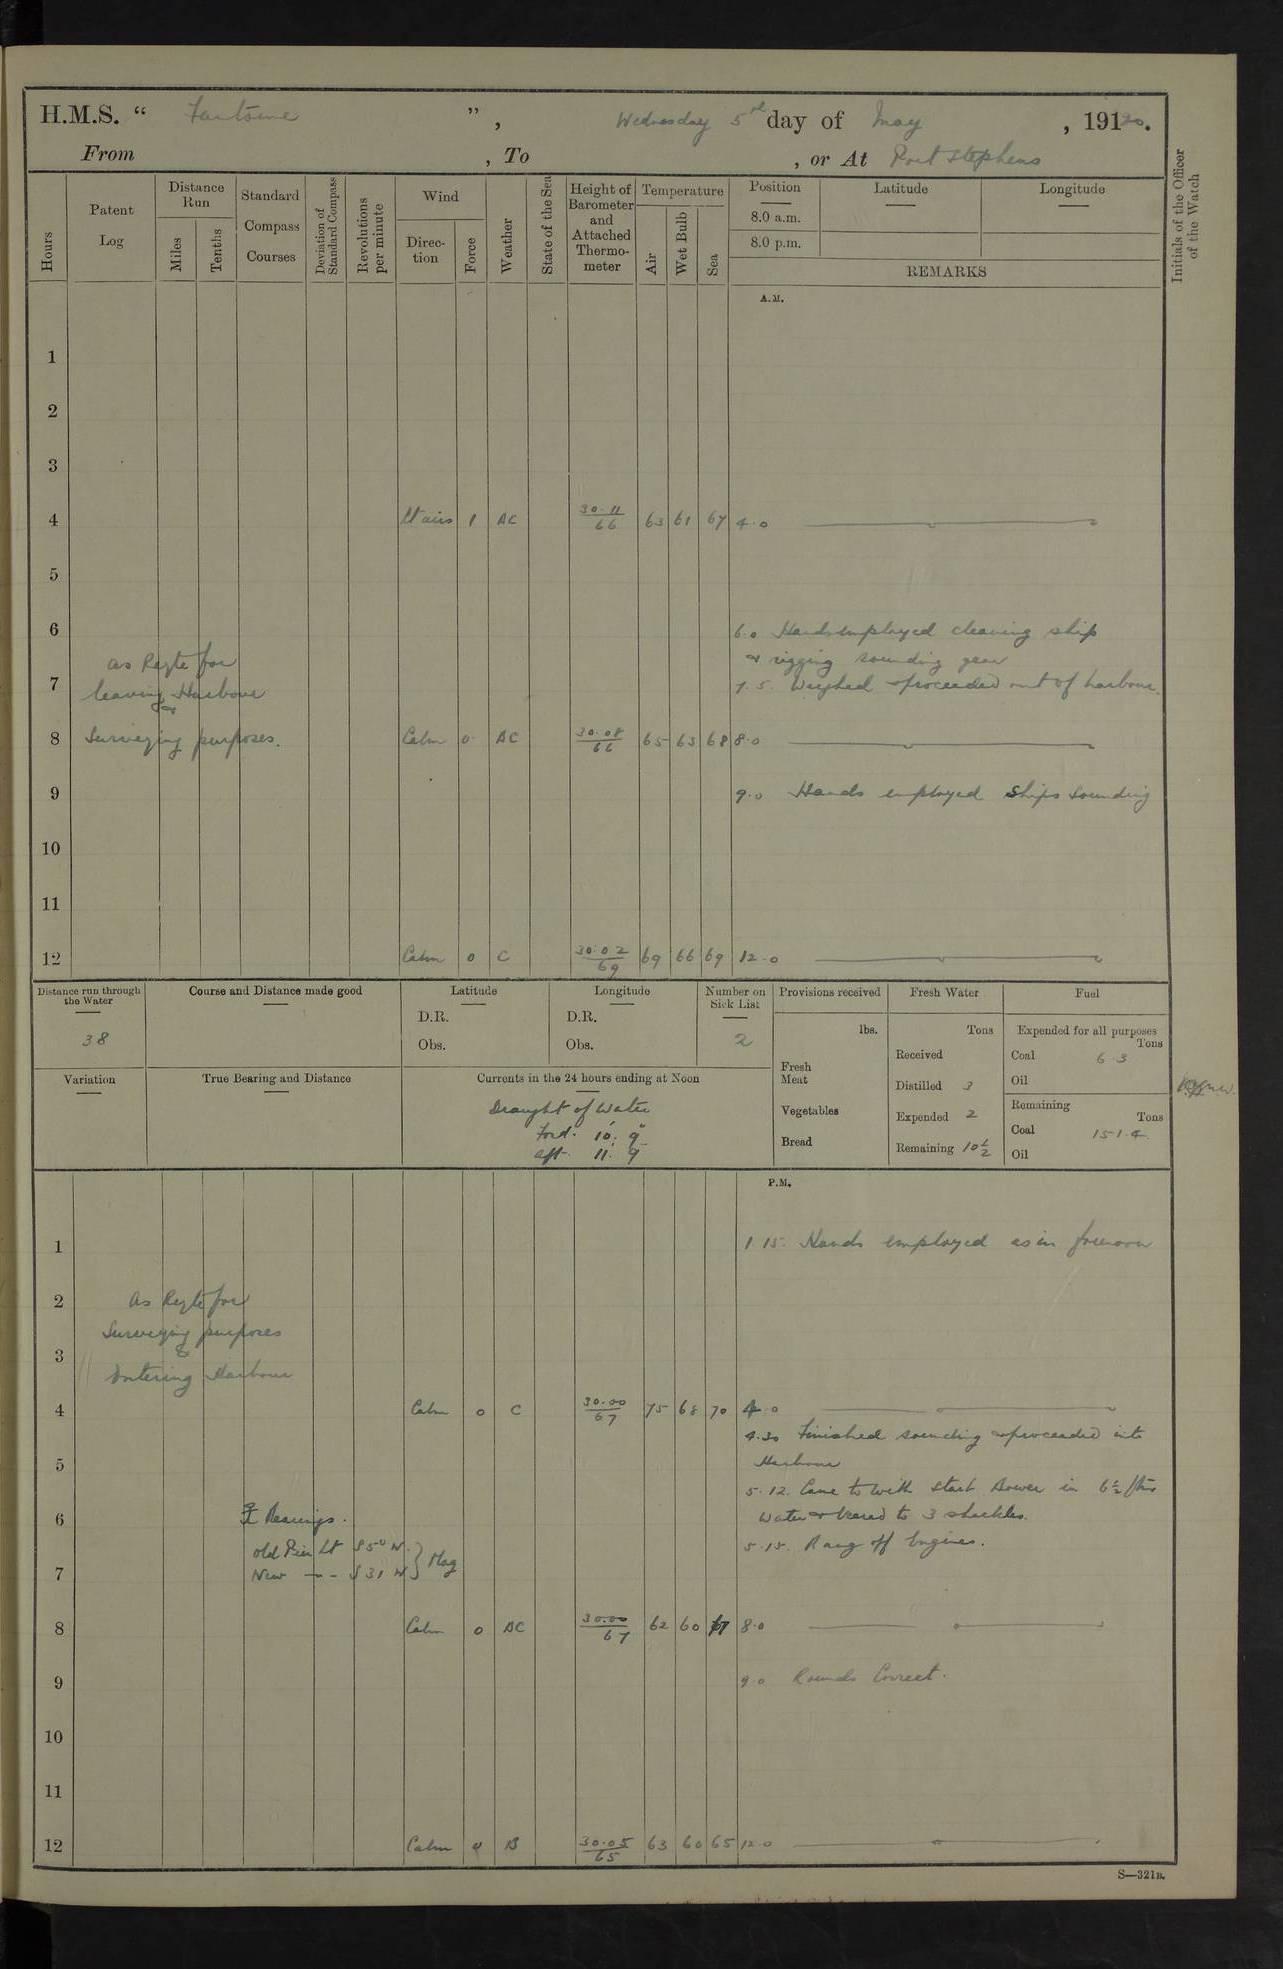 H.M.S. " Fantome ", Wednesday 5th day of May, 19120.
From , To , or At Port Stephens
Hours
Patent Log
Distance Run
Miles
Tenths
Standard Compass Courses
Deviation of Standard Compass
Revolutions per minute
Wind
Direction
Force
Weather
State of the Sea
Height of Barometer and Attached Thermometer
Temperature
Air
Wet Bulb
Sea
Position
8.0 a.m.
8.0 p.m.
Latitude
Longitude
REMARKS
Initials of the Officer of the Watch
A.M.
1
2
3
4 Lt airs 1 BC 30.11 66 63 61 67 4.0
5
6 6.0 Hands employed cleaning ship
& rigging sounding gear
as Reqte for
7 leaving Harbour 7.5. Weighed & proceeded out of harbour.
&
8 Surveying purposes. Calm 0 BC 30.08 66 65 63 68 8.0
9 9.0 Hands employed Ships Sounding
10
11
12 Calm 0 C 30.02 69 69 66 69 12.0
Distance run through the Water
38
Course and Distance made good
Latitude
D.R.
Obs.
Longitude
D.R.
Obs.
Number on Sick List
2
Variation
True Bearing and Distance
Currents in the 24 hours ending at Noon
Draught of Water
Ford. 10' 9"
aft. 11' 9
Provisions received
lbs.
Fresh Meat
Vegetables
Bread
Fresh Water
Tons
Received
Distilled 3
Expended 2
Remaining 10½
Fuel
Expended for all purposes
Tons
Coal 6.3
Oil
Remaining
Tons
Coal 151.4
Oil
P.M.
1 1.15. Hands employed as in forenoon
2 As Reqte for
Surveying purposes
3 &
Entering Harbour
4 Calm 0 C 30.00 67 75 68 70 4.0
4.30 Finished sounding & proceeded into
5 Harbour
5.12. Came to with Starb Bower in 6½ fms
6 Bearings. water & veered to 3 shackles.
Old Pier Lt S 50 W. 5.15. Rang off Engines.
7 New — - S 31 W } Mag
8 Calm 0 BC 30.00 67 62 60 67 8.0
9 9.0 Rounds Correct.
10
11
12 Calm 0 B 30.05 65 63 60 65 12.0
S—321B.